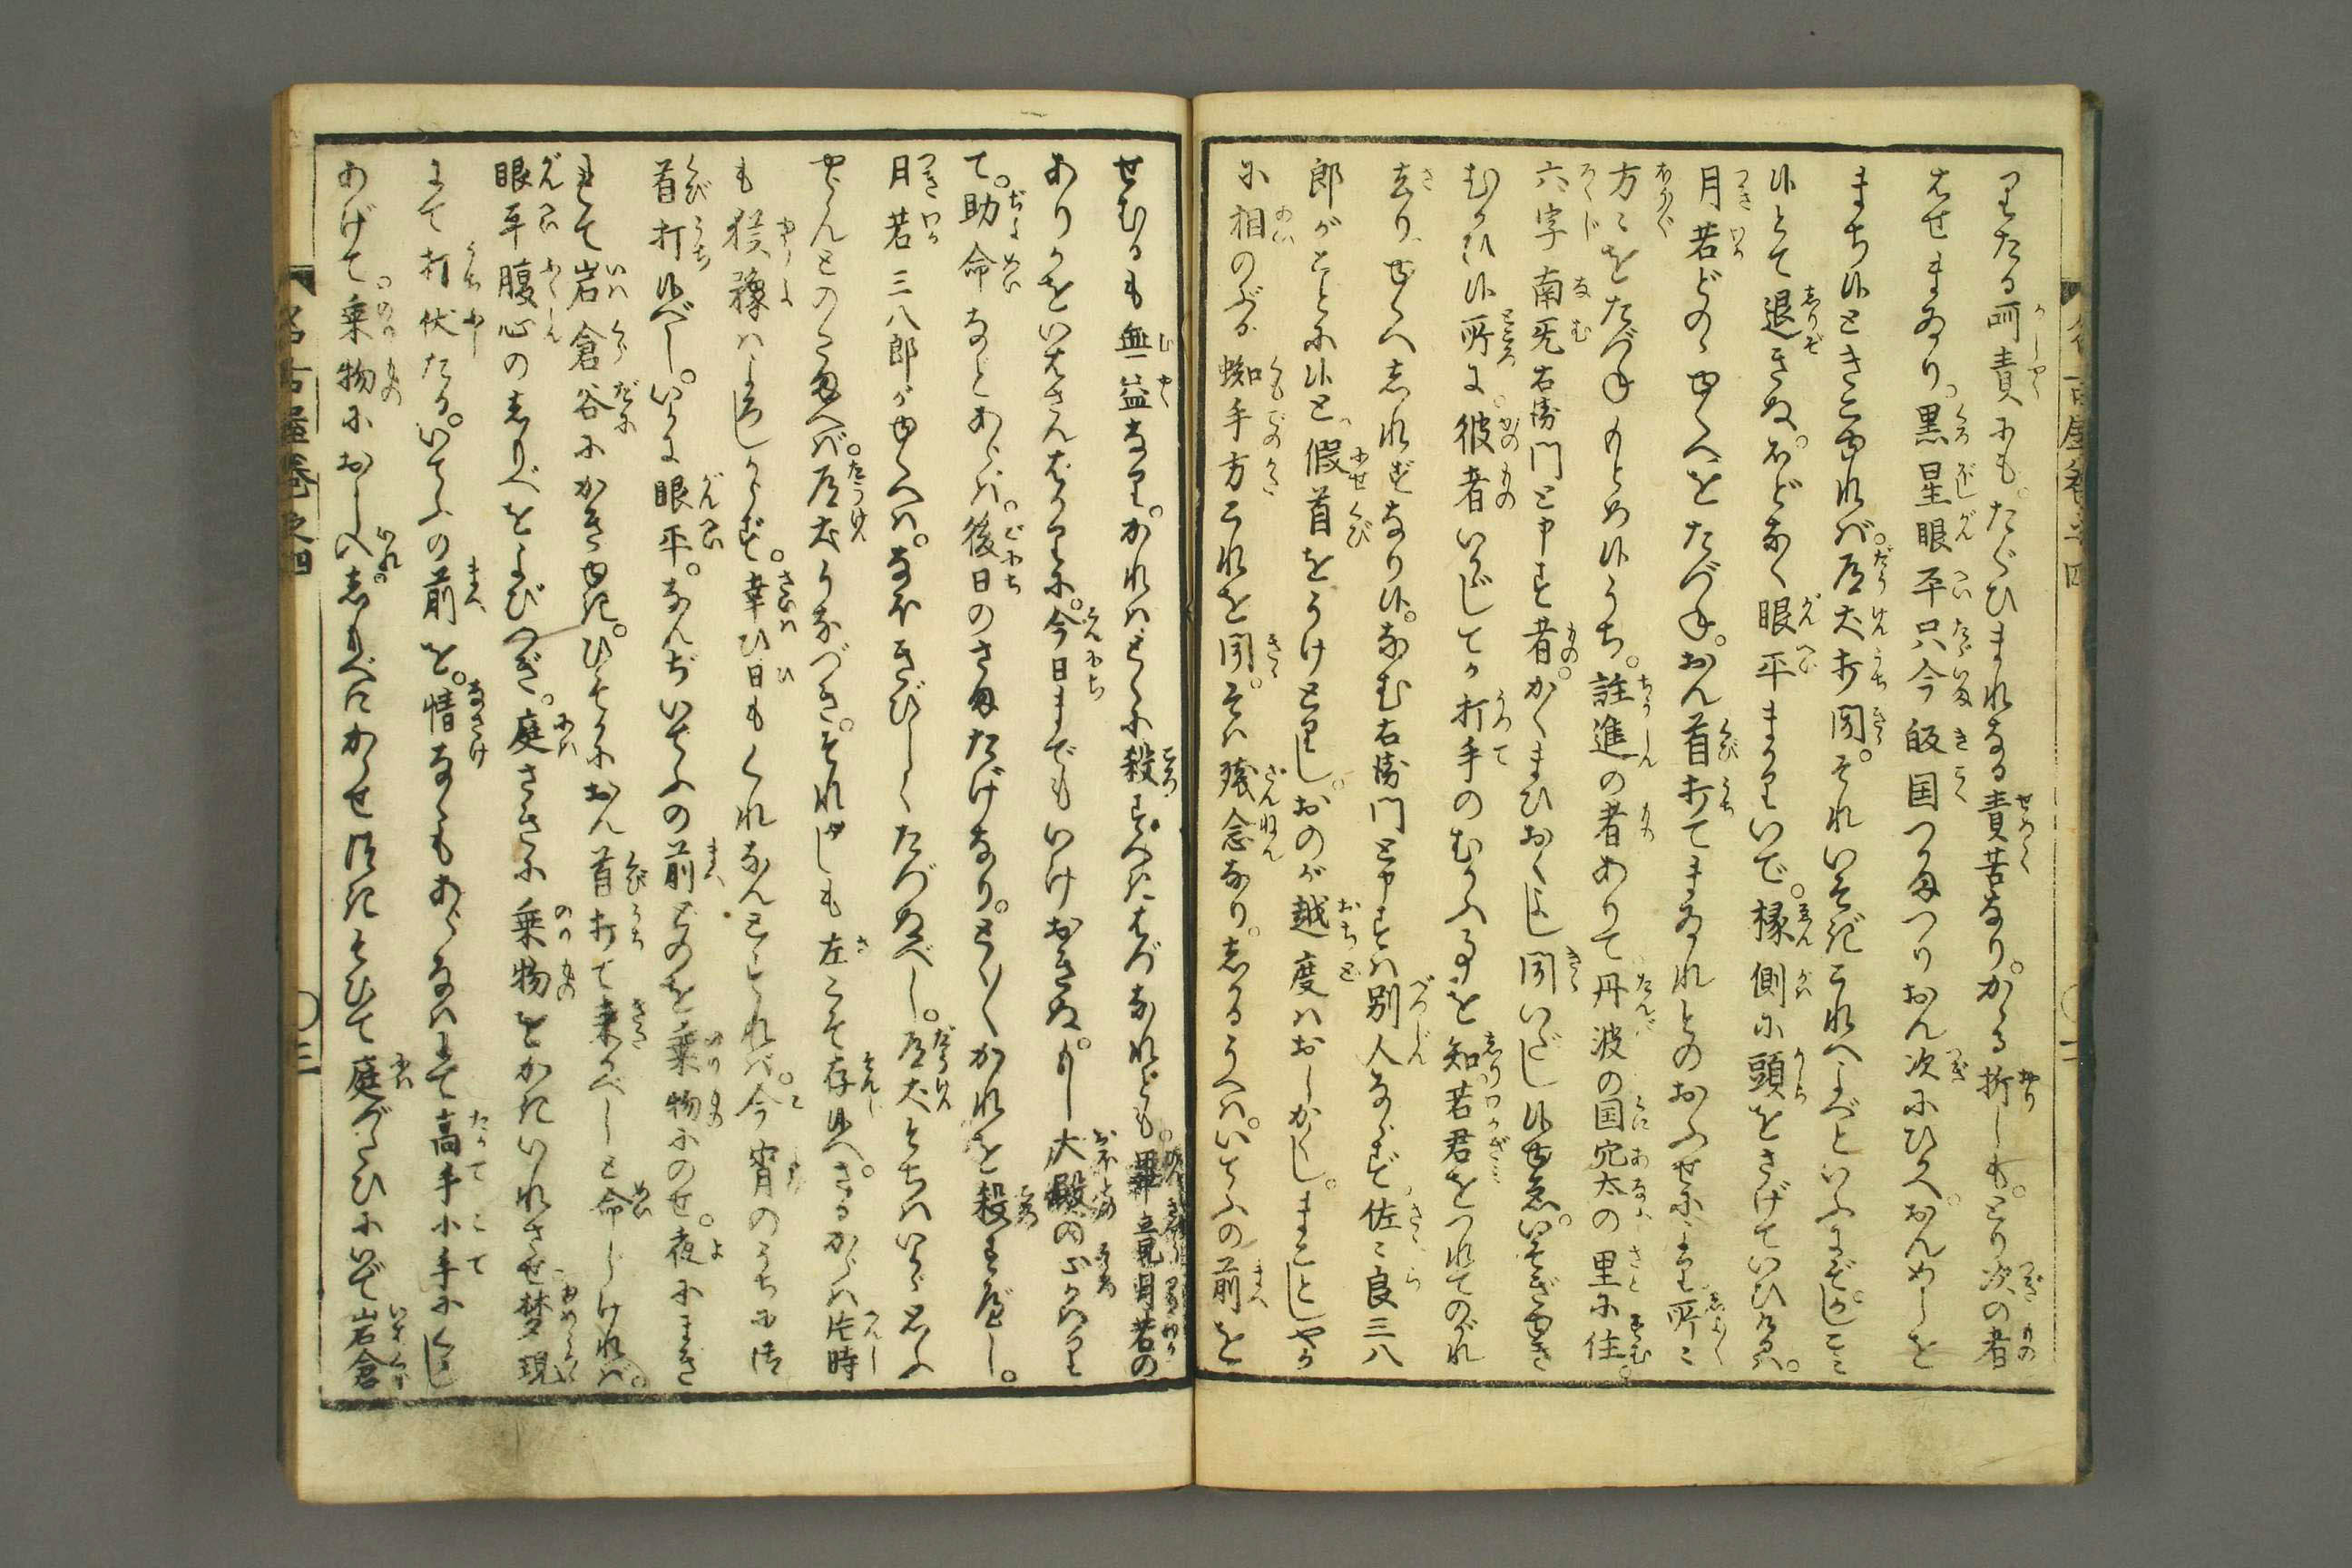 りたる呵責にも。たぐひまれなる責苦なり。かゝる折しも。とり次の者
はせまゐり。黒星眼平只今皈国つかまつりおん次にひかへ。おんめしを
まち候ときこゆれバ。道犬打聞。それいそぎこれへよべといふまでし。こゝ
候とて退きぬ。ほどなく眼平まかりいで。椽側に頭をさげていひけるハ。
月若どのゝゆくへをたづね。おん首打てまゐれとのおふせにより所〻
方〻をたづねもとめ候うち。註進の者ありて丹波の国穴太の里に住。
六字南無右衛門と申す者。かくまひおくよし聞いだし候ゆゑ。いそぎゆき
むかひ候所に。彼者いかゞしてか打手のむかふ事を知。若君をつれてのがれ
去り。ゆくへしれずなり候。なむ右衛門と申すハ別人ならず。佐〻良三八
郎がことに候と。假首をうけとりし。おのが越度ハおしかくし。まことしやか
に相のぶる。蜘手方これを聞。そハ残念なり。しかるうへハ。いてふの前を
せむるも無益なり。かれハとくに殺すべきはづなれども。月若の
ありかをいはさんばかりに。今日までもいけおきぬ。もし大殿の心かハり
て。助命などあらバ。後日のさまたげなり。とく〳〵かれを殺すべし。
月若三八郎がゆくへハ。なほきびしくたづぬべし。道犬そちハいかゞ思ふ
やらんとのたまへバ。道犬うなづき。それがしも左こそ存候へ。さるからハ片時
も猶豫ハよろしからず。幸ひ日もくれなんとすれバ。今宵のうちに御
首打候べし。いかに眼平。なんぢいてふの前どのを乗物にのせ。夜にまぎ
れて岩倉谷にかきゆき。ひそかにおん首打て来るべしと命じけれバ。
眼平腹心のしりべをよびつぎ。庭さきに乗物をかきいれさせ。夢現
にて打伏たる。いてふの前を。情なくもあらなはにて高手小手にくゝし
あげて。乗物におし入。しもべにかゝせ付きそひて庭づたひにいで岩倉
名古屋巻之四
三